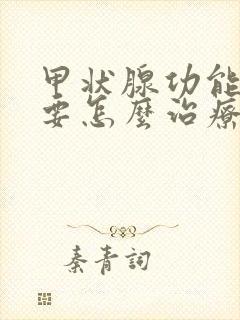 甲状腺功能
要怎麼治療
秦青詞